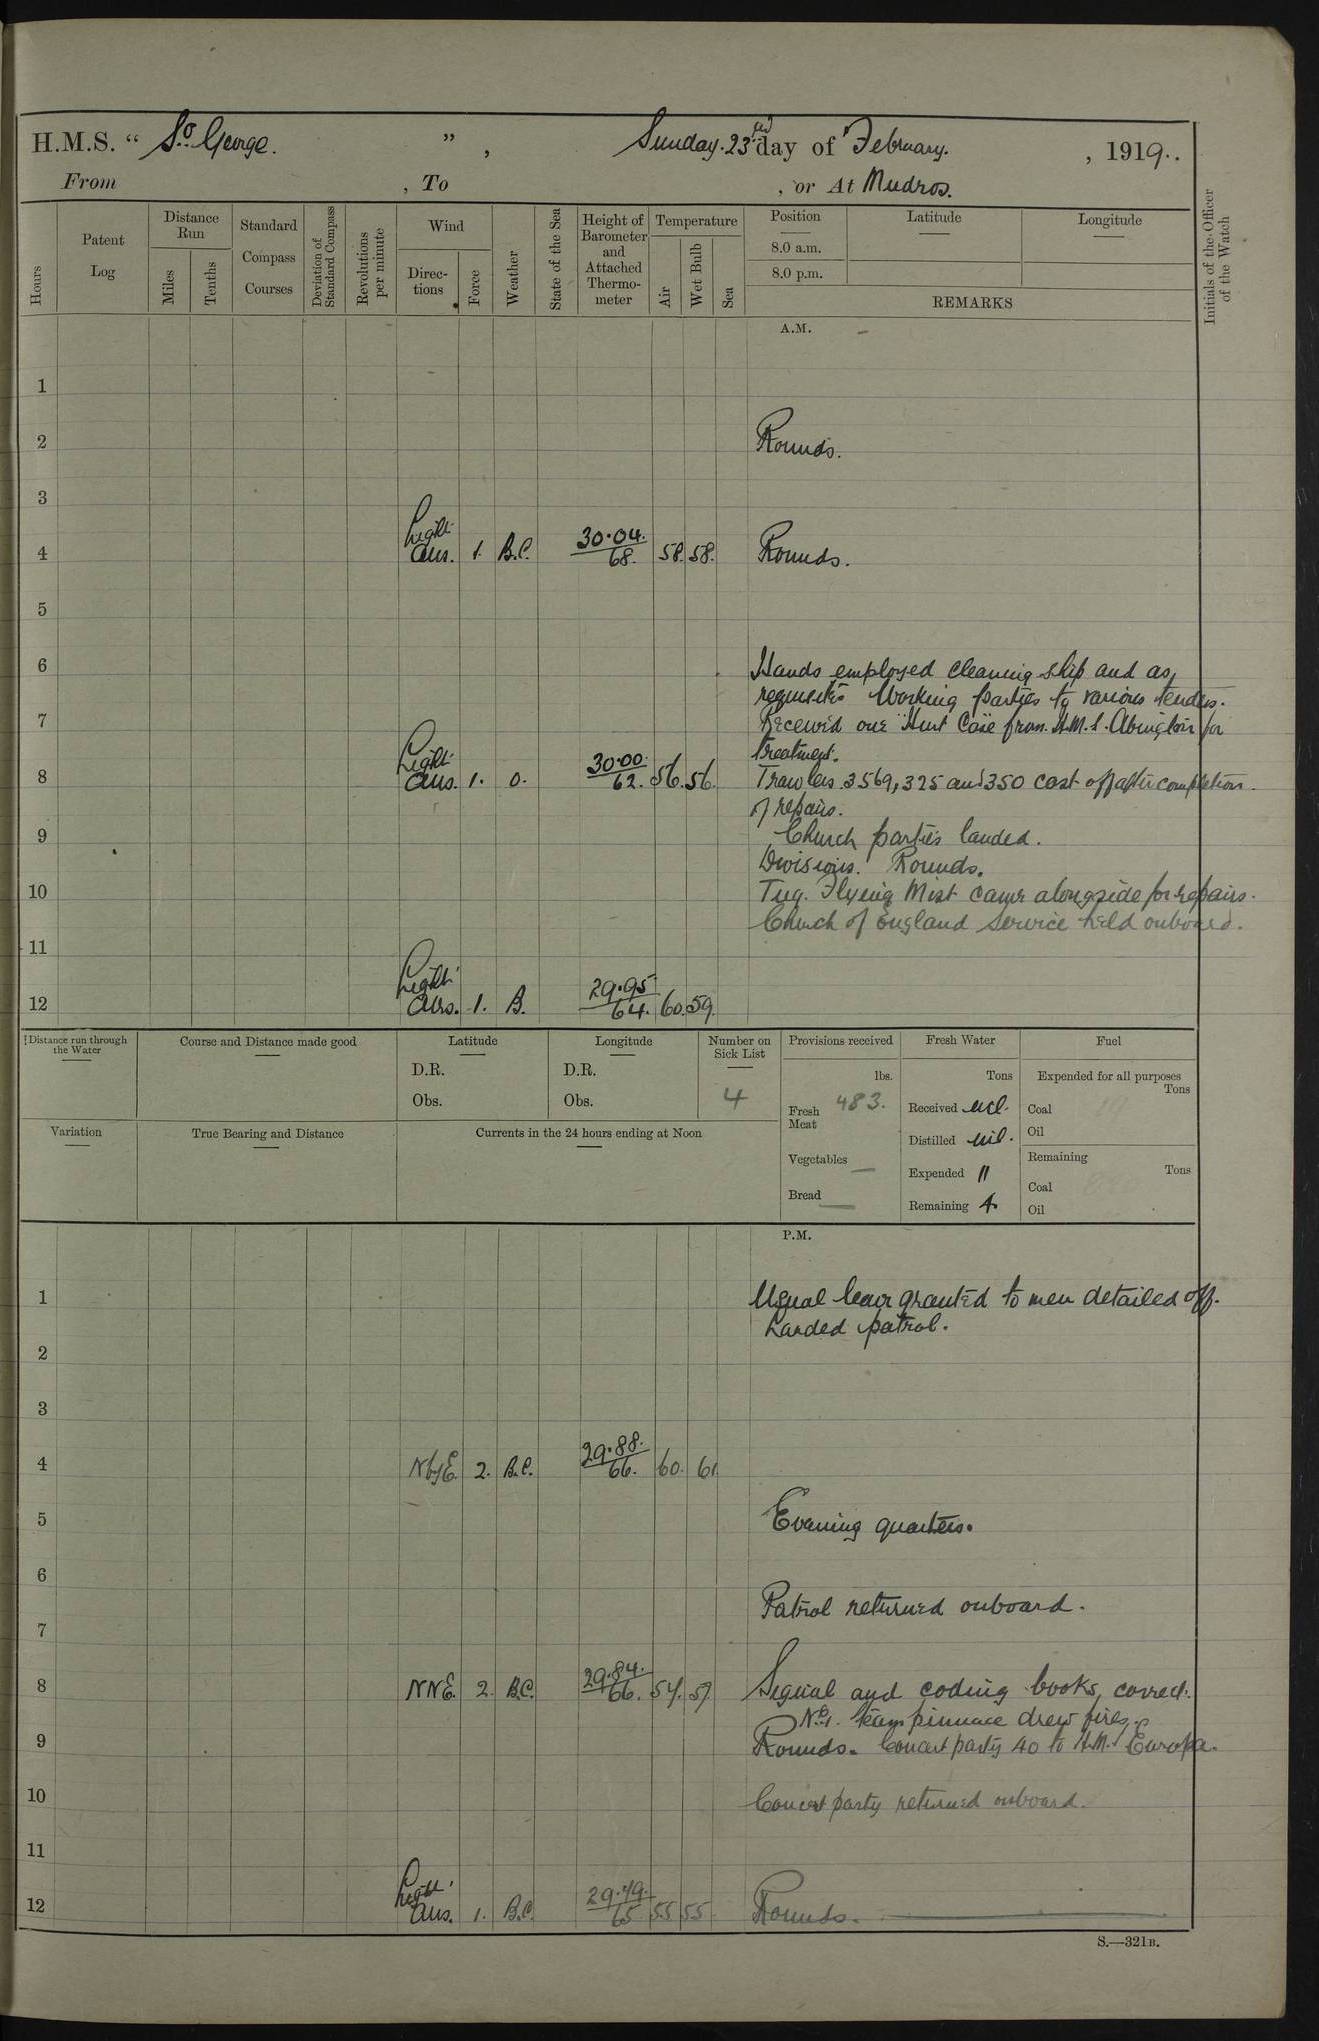 H.M.S. “ St. George. ” , Sunday. 23rd day of February. , 1919..
From , To , or At Mudros.
Hours
Patent Log
Distance Run
Miles
Tenths
Standard Compass Courses
Deviation of Standard Compass
Revolutions per minute
Wind
Directions
Force
Weather
State of the Sea
Height of Barometer and Attached Thermometer
Temperature
Air
Wet Bulb
Sea
Position
8.0 a.m.
8.0 p.m.
Latitude
Longitude
REMARKS
Initials of the Officer of the Watch
A.M.
1
2 Rounds.
3
4 Light Airs. 1. B.C. 30.04. 68. 58. 58. Rounds.
5
6 Hands employed cleaning ship and as
requisite. Working parties to various tenders.
7 Received one "Hurt Case" from H.M.S. Abington for
treatment.
8 Light Airs. 1. O. 30.00. 62. 56. 56. Trawlers 3569, 325 and 350 cast off after completion
of repairs.
9 Church parties landed.
Divisions. Rounds.
10 Tug. Flying Mist came alongside for repairs.
Church of England Service held onboard.
11
12 Light Airs. 1. B. 29.95 64. 60. 59.
Distance run through the Water
Course and Distance made good
Latitude
D.R.
Obs.
Longitude
D.R.
Obs.
Number on Sick List
4
Provisions received
lbs.
Fresh Meat 483.
Vegetables —
Bread —
Fresh Water
Tons
Received nil.
Distilled nil.
Expended "
Remaining
Fuel
Expended for all purposes
Tons
Coal
Oil
Remaining
Tons
Coal
Oil
Variation
True Bearing and Distance
Currents in the 24 hours ending at Noon
P.M.
1 Usual leave granted to men detailed off.
Landed patrol.
2
3
4 NbyE. 2. B.C. 29.88. 66. 60. 61
5 Evening quarters.
6
Patrol returned onboard.
7
8 NNE. 2. B.C. 29.84. 66. 57. 57 Signal and coding books, correct.
No. 1. steam pinnace drew fires.
9 Rounds. Concert party 40 to H.M.S Europa.
10 Concert party returned onboard.
11
12 Light Airs. 1. B.C. 29.79. 65 55 55 Rounds.
S.—321B.